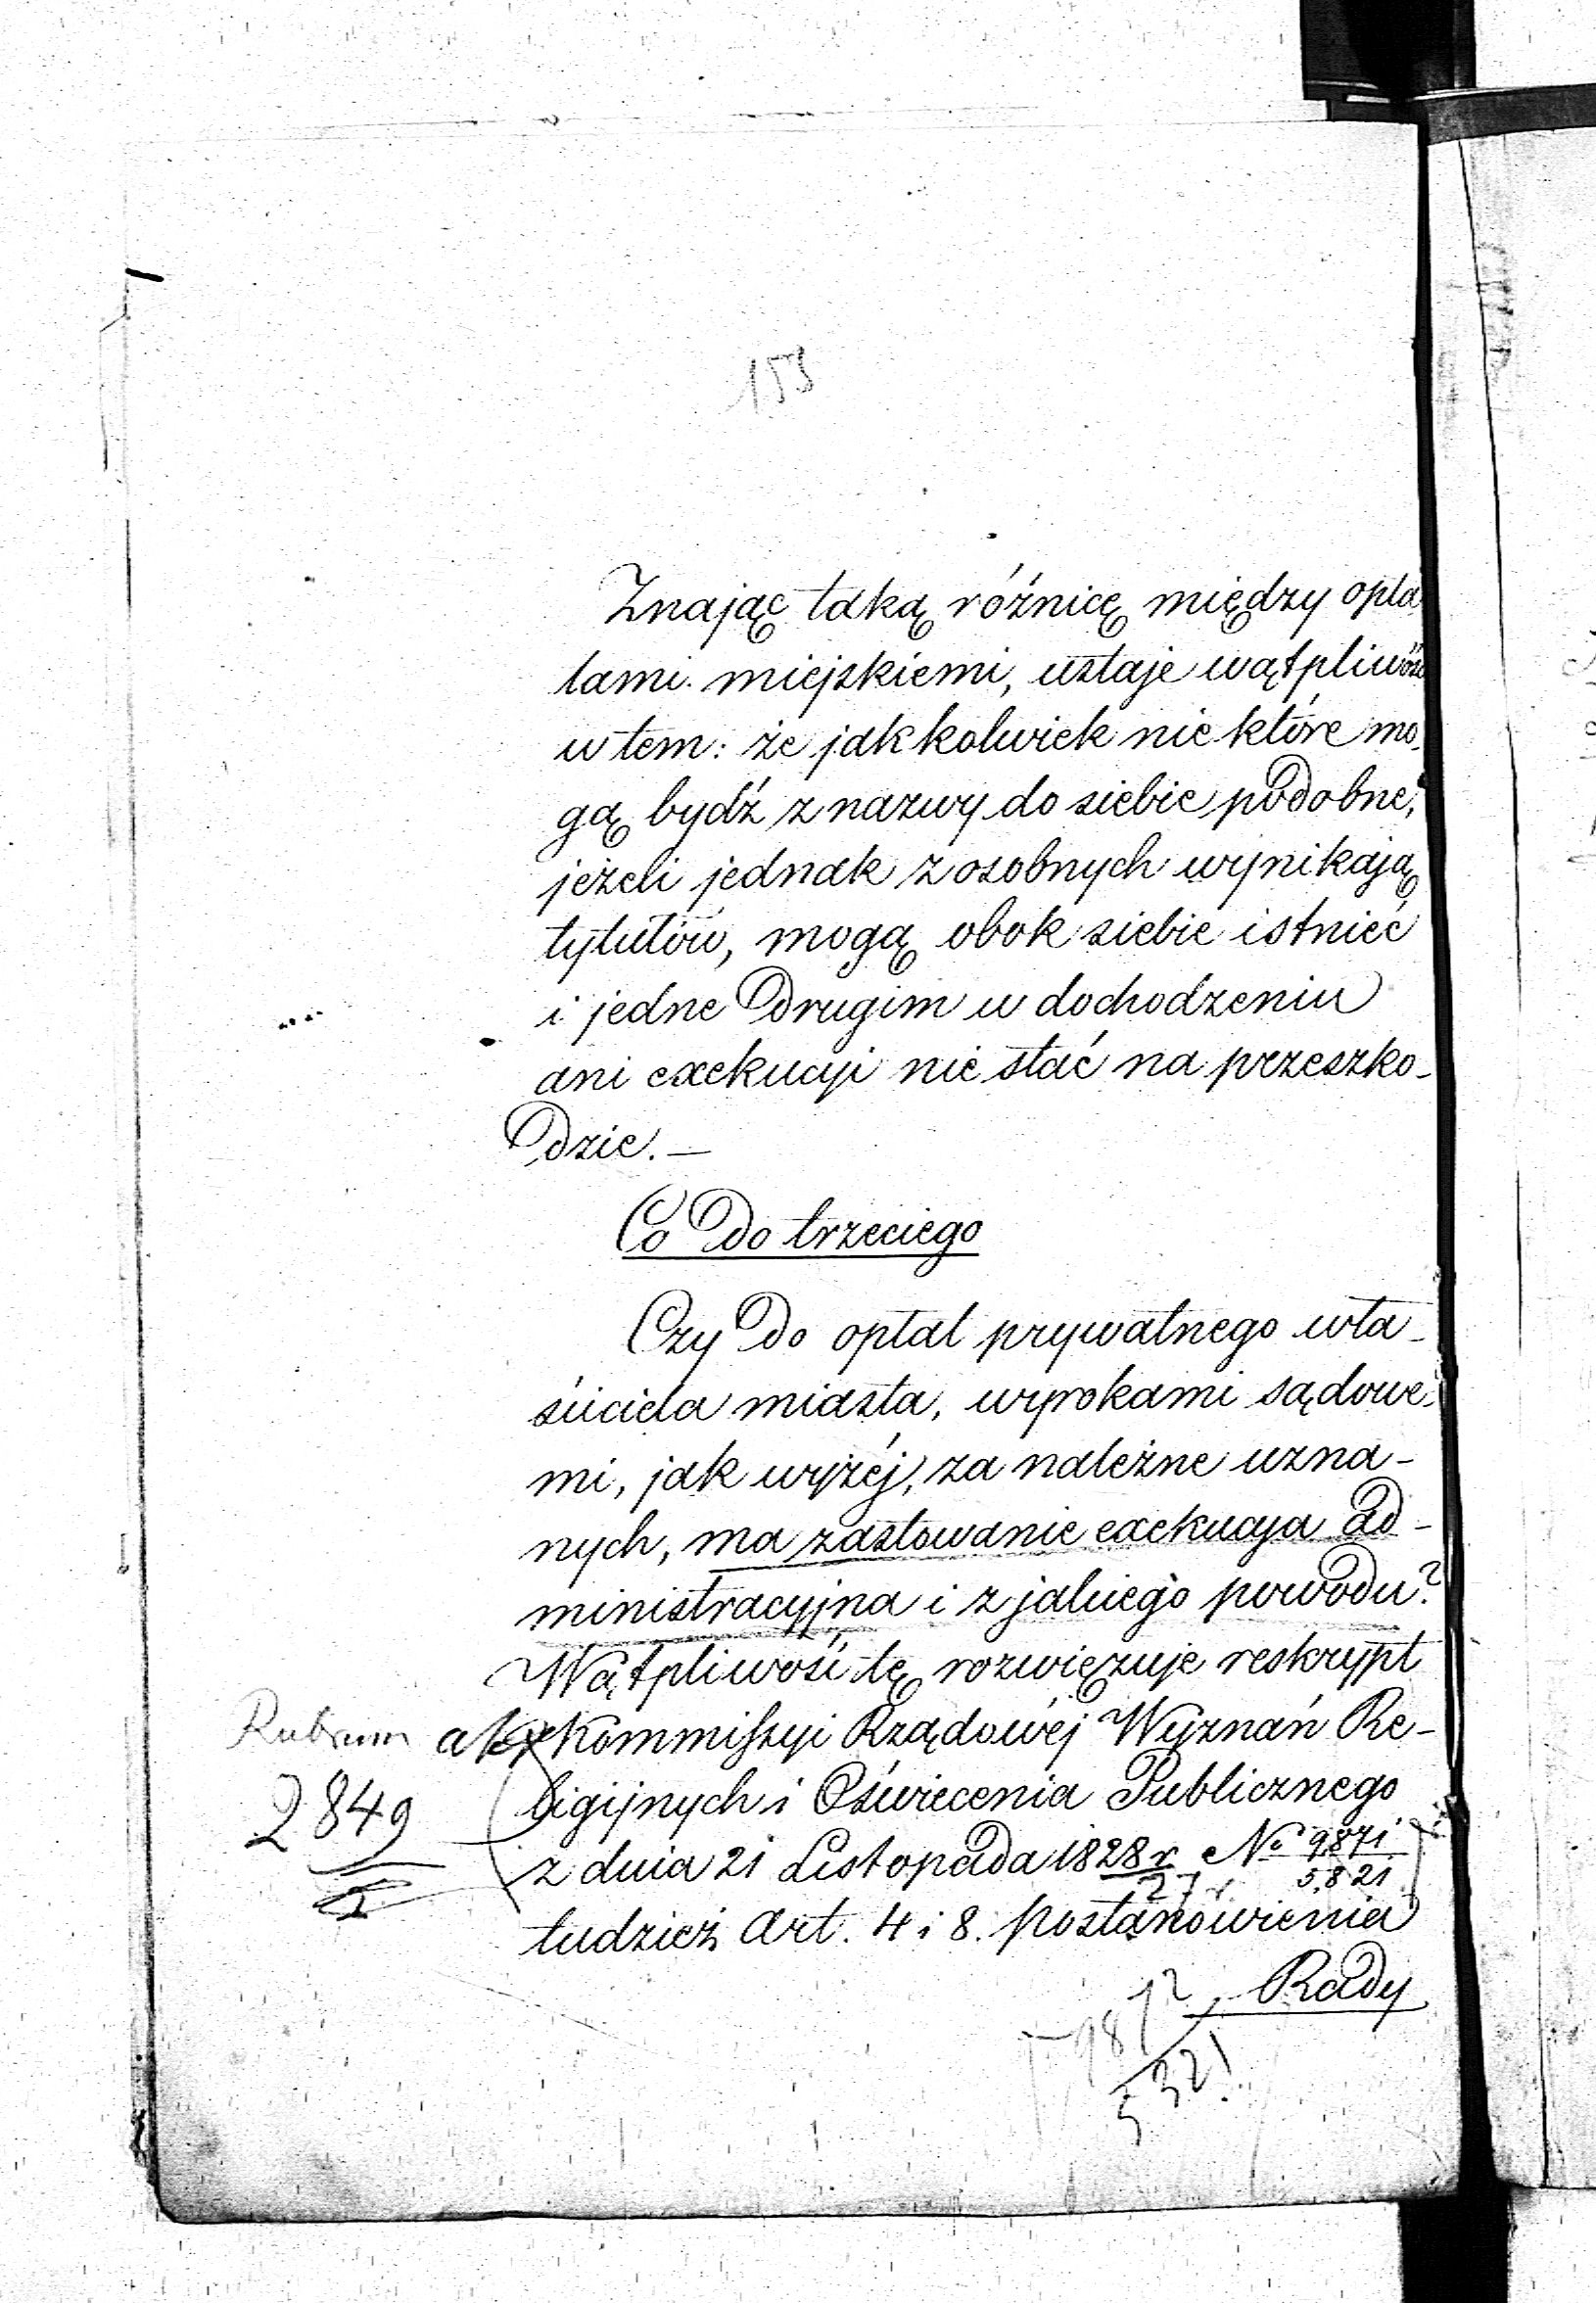 153
Znając taką różnicę między opła
tami miejskiemi, ustaje wątpliwość
w tem: że jakkolwiek nie które mo-
gą bydź z nazwy do siebie podobne,
jeżeli jednak z osobnych wynikają
tytułów, mogą obok siebie istnieć
i jedne drugim w dochodzeniu
ani exekucyi nie stać na przeszko-
dzie. —
Co do trzeciego
Czy do opłat prywatnego wła-
ściciela miasta, wyrokami sądowe-
mi, jak wyżéj, za należne uzna-
nych, ma zastowanie exekucya ad-
ministracyjna i z jakiego powodu?
Wątpliwość tę rozwięzuje reskrypt
Rubrum
Kommissyi Rządowéj Wyznań Re-
2849
ligijnych i Oświecenia Publicznego
z dnia 21 Listopada 1828 r. No 9871
27 r. 5,821
tudzież Art. 4 i 8. postanowienia
Rady
9872
5321